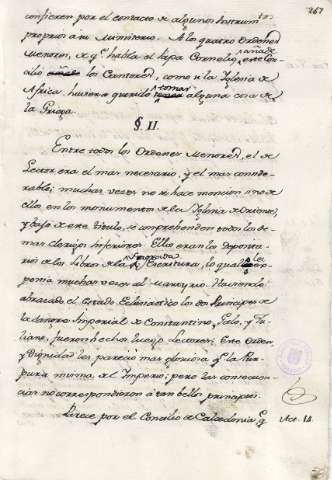 267
confieren por el contacto de algunos Instrum.tos
propios a su Ministerio. A los quatro Ordenes
Menores, de q.e habla el Papa Cornelio, añade
este Concilio los Cantores, como si la Iglesia de
Africa, huviera querido tomar alguna cosa de
la Griega.
§. II.
Entre todos los Ordenes Menores, el de
Lector era el mas necesario, y el mas conside-
rable; muchas veces no se hace mencion sino de
ellos en los monumentos de la Iglesia de Oriente,
y bajo de este titulo, se comprehenden todos los de-
mas clerigos inferiores. Ellos eran los deposita-
rios de los Libros de la Sagrada Escritura, lo qual les ex-
ponia muchas veces al martyrio. Haviendo
abrazado el Estado Eclesiastico los dos Principes de
la sangre Imperial de Constantino, Galo, y Ju-
liano, fueron hechos luego Lectores: Este Orden,
y Dignidad les parecio mas gloriosa q.e la Pur-
pura misma del Imperio; pero las consecuen-
cias no correspondieron a tan bellos principios.
Parece por el Concilio de Calcedonia q.e Act. 14.